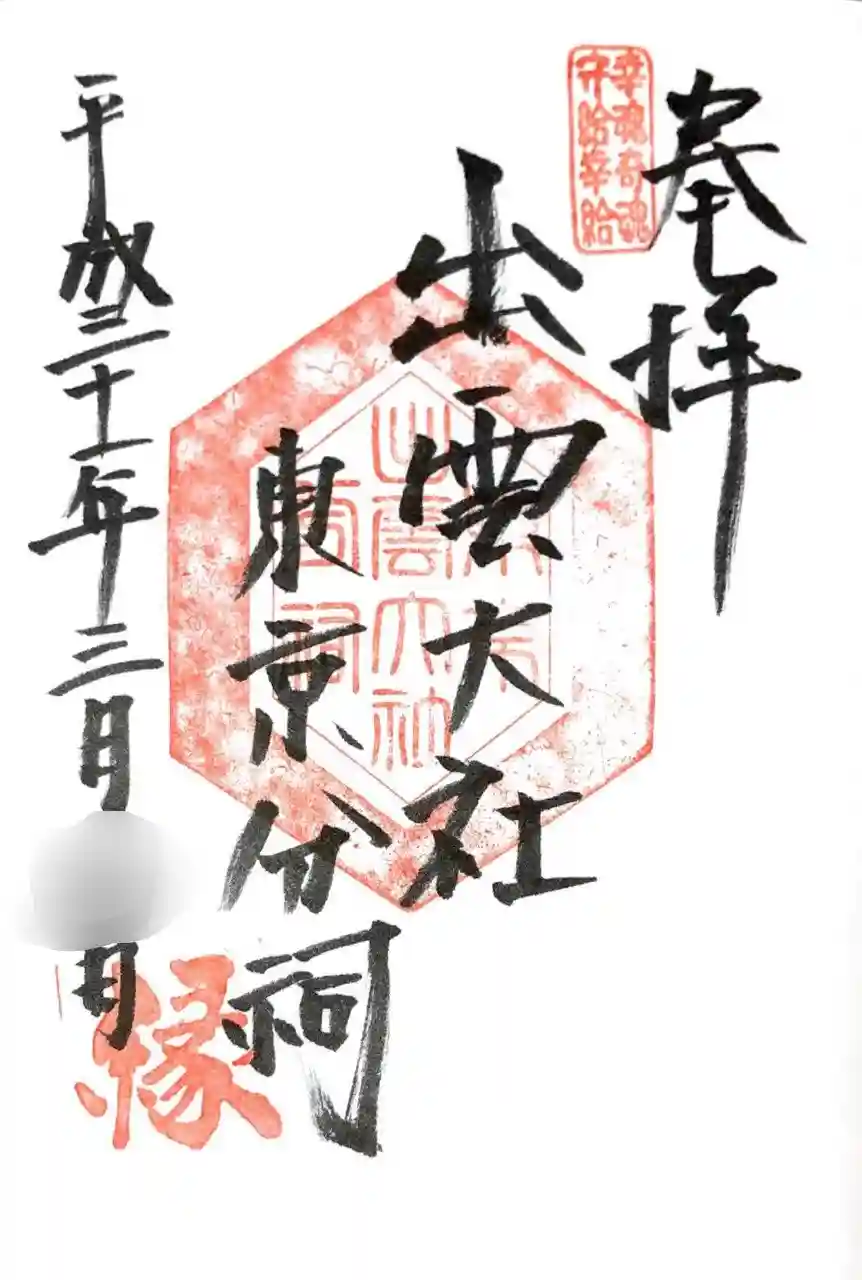 奉拝
幸魂奇魂
守給幸給
出雲大社
東京分祠
出雲大社
東京
分祠
平成三十一年三月
日
縁